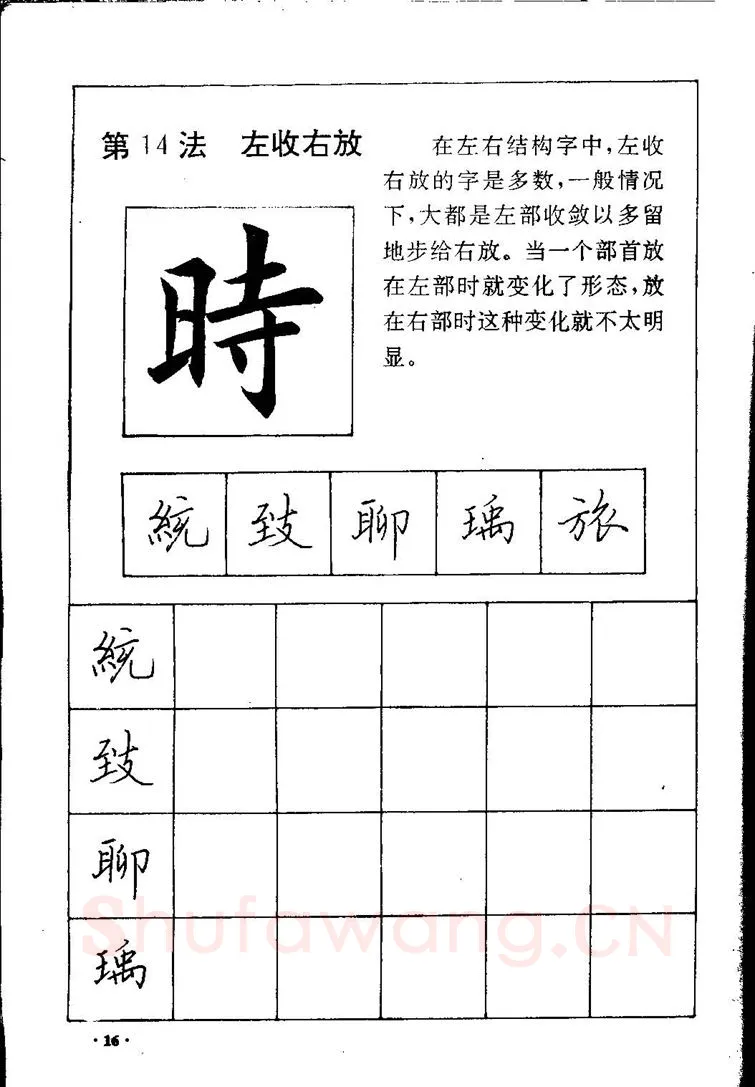 第14法 左收右放
在左右结构字中，左收
右放的字是多数，一般情况
下，大都是左部收敛以多留
地步给右放。当一个部首放
在左部时就变化了形态，放
在右部时这种变化就不太明
显。
時
統 致 聊 瑀 旅
統
致
聊
瑀
Shufawang.CN
·16·